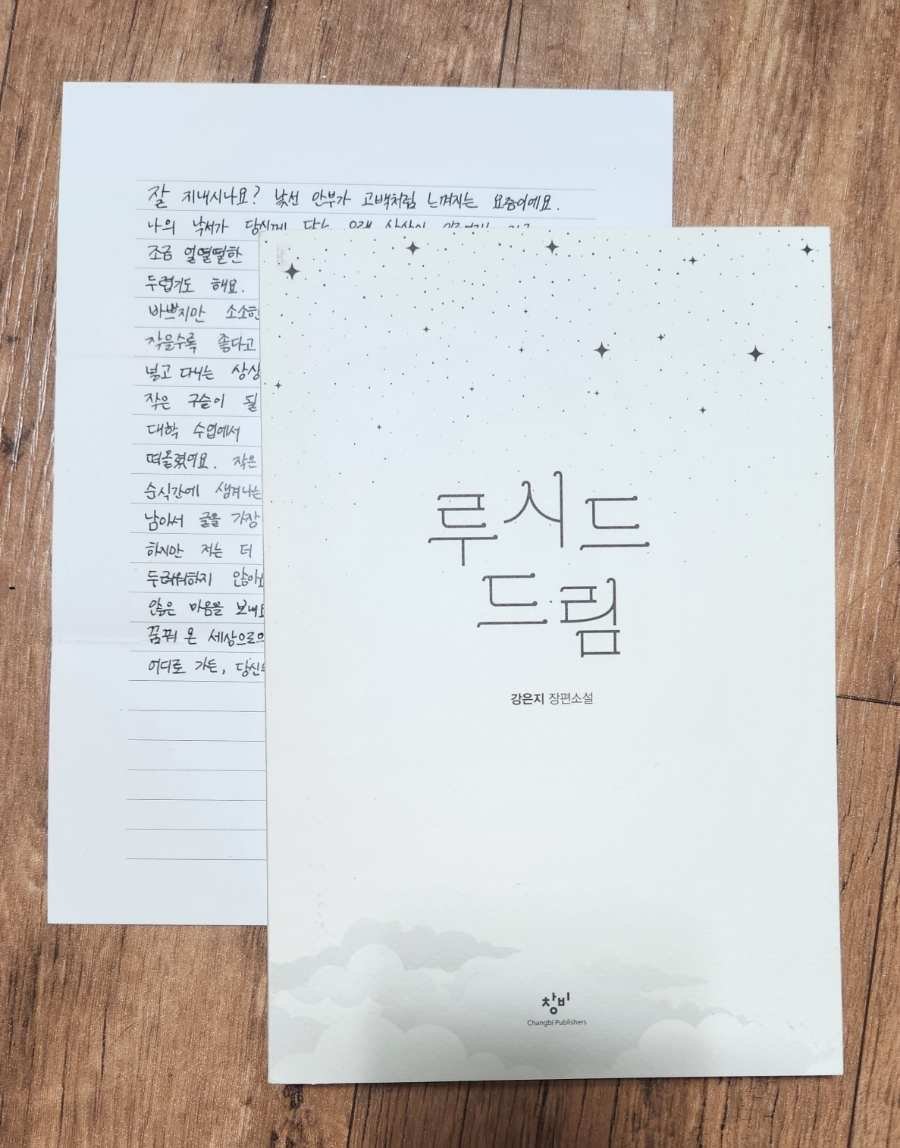 잘 지내시나요? 낯선 안부가 고백처럼 느껴지는 요즘이에요.
나의 낙서가 당신께 닿는 오랜 상상이
조금 얼떨떨한
두렵기도 해요.
바쁘지만 소소한
작을수록 좋다고
넣고 다니는 상상
작은 구슬이 될
대학 수업에서
떠올렸어요. 작은
순식간에 생겨나는
남아서 글을 가장
하지만 저는 더
두려워하지 않아요
않은 마음을 보내요
꿈꿔 온 세상으로의
어디로 가든, 당신의
루시드
드림
강은지 장편소설
창비
Changbi Publishers